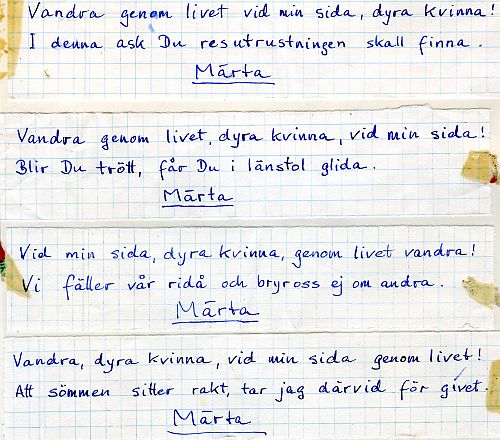 Vandra genom livet vid min sida, dyra kvinna!
I denna ask Du resutrustningen skall finna.
Märta
Vandra genom livet, dyra kvinna, vid min sida!
Blir Du trött, får Du i länstol glida.
Märta
Vid min sida, dyra kvinna, genom livet vandra!
Vi fäller vår ridå och bryross ej om andra.
Märta
Vandra, dyra kvinna, vid min sida genom livet!
Att sömmen sitter rakt, tar jag därvid för givet.
Märta